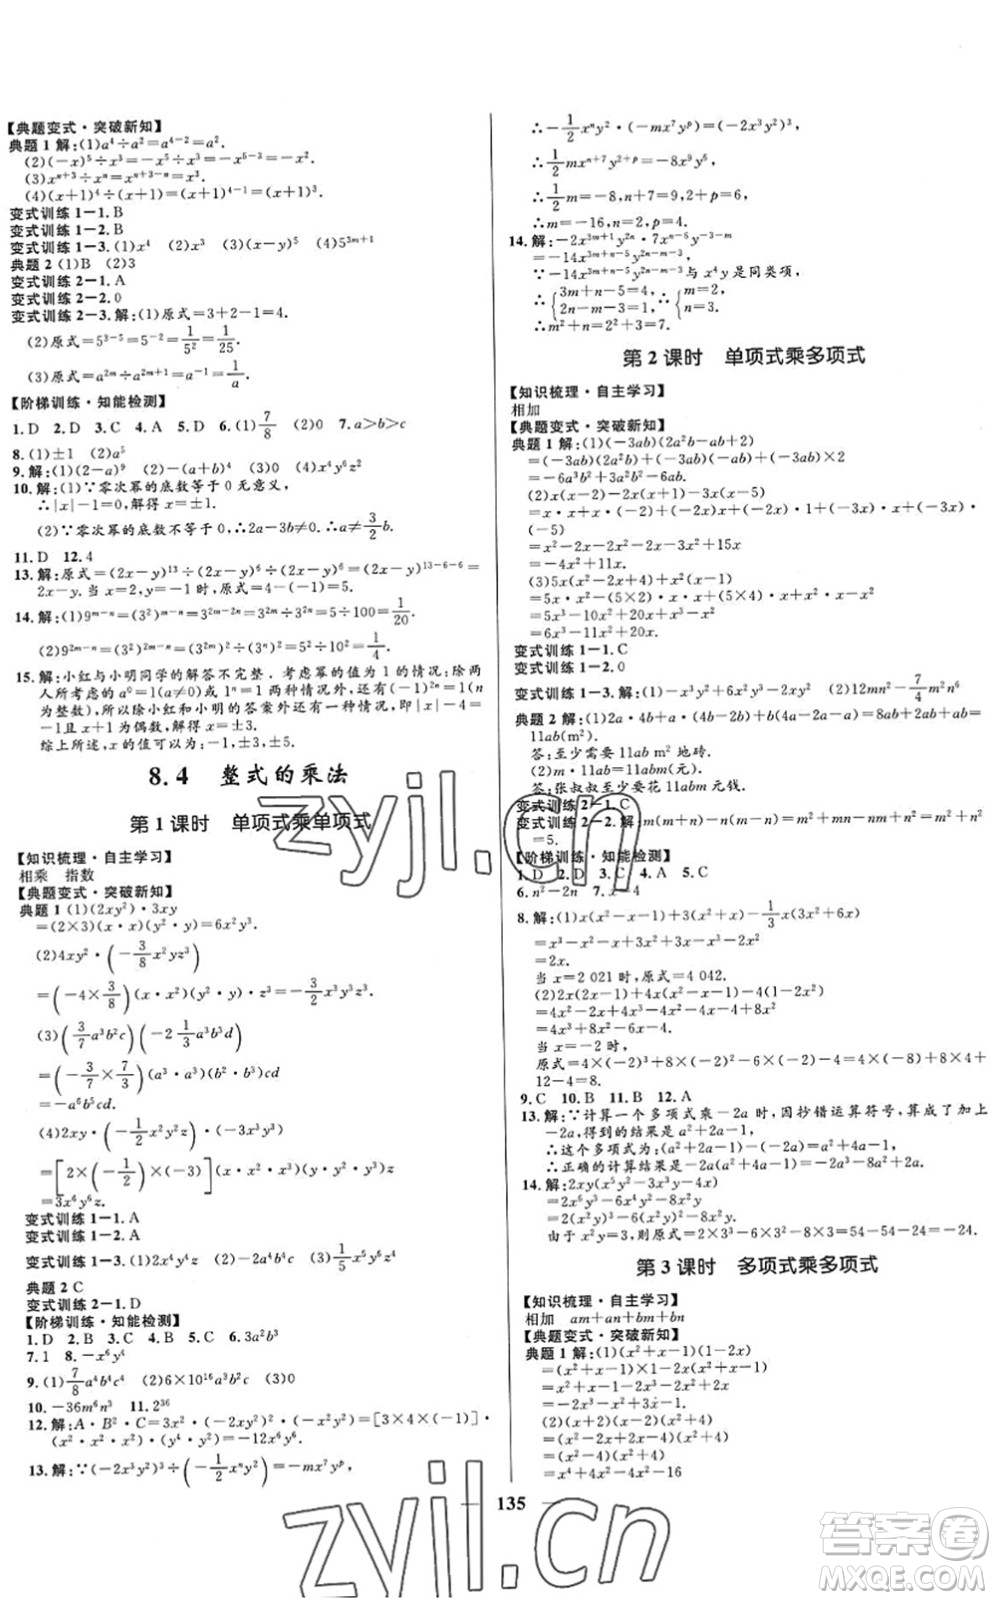 【典题变式·突破新知】
典题 1 解:(1)a⁴÷a²=a⁴⁻²=a².
(2)(-x)⁵÷x³=-x⁵÷x³=-x⁵⁻³=-x².
(3)xⁿ⁺³÷xⁿ=xⁿ⁺³⁻ⁿ=x³.
(4)(x+1)⁴÷(x+1)=(x+1)⁴⁻¹=(x+1)³.
变式训练 1-1. B
变式训练 1-2. B
变式训练 1-3. (1)x⁴ (2)-x³ (3)(x-y)⁵ (4)5³ᵐ⁺¹
典题 2 (1)B (2)3
变式训练 2-1. A
变式训练 2-2. 0
变式训练 2-3. 解:(1)原式=3+2-1=4.
(2)原式=5³⁻⁵=5⁻²=1/5²=1/25.
(3)原式=a²ᵐ÷a²ᵐ⁺¹=a⁻¹=1/a.
【阶梯训练·知能检测】
1. D 2. D 3. C 4. A 5. D 6. (1)7/8 (2)0 7. a>b>c
8. (1)±1 (2)a⁵
9. 解:(1)(2-a)⁹ (2)-(a+b)⁵ (3)-1/4x⁴y⁶z²
10. 解:(1)∵零次幂的底数等于 0 无意义,
∴|x|-1=0,解得 x=±1.
(2)∵零次幂的底数不等于 0,∴2a-3b≠0.∴a≠3/2b.
11. D 12. 4
13. 解:原式=(2x-y)¹³÷(2x-y)⁶÷(2x-y)⁶=(2x-y)¹³⁻⁶⁻⁶=
2x-y. 当 x=2,y=-1 时,原式=4-(-1)=5.
14. 解:(1)9ᵐ⁻ⁿ=(3²)ᵐ⁻ⁿ=3²ᵐ⁻²ⁿ=3²ᵐ÷3²ⁿ=5÷100=1/20.
(2)9²ᵐ⁻ⁿ=(3²)²ᵐ⁻ⁿ=(3²ᵐ)²÷3²ⁿ=5²÷10²=1/4.
15. 解:小红与小明同学的解答不完整. 考虑幂的值为 1 的情况:除两
人所考虑的 a⁰=1(a≠0)或 1ⁿ=1 两种情况外,还有(-1)²ⁿ=1(n
为整数),所以除小红和小明的答案外还有一种情况,即|x|-4=
-1且 x+1 为偶数,解得 x=±3.
综上所述,x 的值可以为:-1,±3,±5.
8.4 整式的乘法
第 1 课时 单项式乘单项式
【知识梳理·自主学习】
相乘 指数
【典题变式·突破新知】
典题 1 (1)(2xy²)·3xy
=(2×3)(x·x)(y²·y)=6x²y³.
(2)4xy²·(-3/8x²yz³)
=(-4×3/8)(x·x²)(y²·y)·z³=-3/2x³y³z³.
(3)(3/7a³b²c)(-2 1/3a³b³d)
=(-3/7×7/3)(a³·a³)(b²·b³)cd
=-a⁶b⁵cd.
(4)2xy·(-1/2x²y²z)·(-3x³y³)
=[2×(-1/2)×(-3)](x·x²·x³)(y·y²·y³)z
=3x⁶y⁶z.
变式训练 1-1. A
变式训练 1-2. A
变式训练 1-3. (1)2x⁴y⁴z (2)-2a⁴b⁴c (3)1/5x⁵y⁵z
典题 2 C
变式训练 2-1. D
【阶梯训练·知能检测】
1. D 2. B 3. C 4. B 5. C 6. 3a²b³
7. 1 8. -x⁶y⁴
9. (1)7/8a⁴b⁴c⁴ (2)6×10¹⁶a²b²c (3)0
10. -36m⁶n³ 11. 2³⁶
12. 解:A·B²·C=3x²·(-2xy²)²·(-x²y²)=[3×4×(-1)]·
(x²·x²·x²)(y⁴·y²)=-12x⁶y⁶.
13. 解:∵(-2x³y²)³÷(-1/2xⁿy²)=-mx⁷yᵖ,
∴-1/2xⁿy²·(-mx⁷yᵖ)=(-2x³y²)³,
∴1/2mxⁿ⁺⁷y²⁺ᵖ=-8x⁹y⁶,
∴1/2m=-8,n+7=9,2+p=6,
∴m=-16,n=2,p=4.
14. 解:-2x³ᵐ⁺¹y²ⁿ·7xⁿ⁻⁶y⁻³⁻ᵐ
=-14x³ᵐ⁺ⁿ⁻⁵y²ⁿ⁻ᵐ⁻³,
∵-14x³ᵐ⁺ⁿ⁻⁵y²ⁿ⁻ᵐ⁻³与 x⁴y 是同类项,
∴{3m+n-5=4,2n-m-3=1.∴{m=2,n=3.
∴m²+n=2²+3=7.
第 2 课时 单项式乘多项式
【知识梳理·自主学习】
相加
【典题变式·突破新知】
典题 1 解:(1)(-3ab)(2a²b-ab+2)
=(-3ab)(2a²b)-(-3ab)(ab)+(-3ab)×2
=-6a³b²+3a²b²-6ab.
(2)x(x-2)-2x(x+1)-3x(x-5)
=x·x-x·2+(-2x)·x+(-2x)·1+(-3x)·x+(-3x)·
(-5)
=x²-2x-2x²-2x-3x²+15x
=-4x²+11x.
(3)5x(x²-2x+4)+x²(x+1)
=5x·x²-5x·(5×2)x+5x·(5×4)x+x²·x+x²
=5x³-10x²+20x+x³+x²
=6x³-9x²+20x.
变式训练 1-1. C
变式训练 1-2. 0
变式训练 1-3. 解:(1)-x³y²+6x²y²-xy² (2)12mn²-7/4m²n⁶
典题 2 解:(1)2a·4b+a·(4b-2b)+b(4a-2a-a)=8ab+2ab+
ab=11ab(m²).
答:至少需要 11ab m² 地砖.
(2)11ab·m=11abm(元).
答:张叔叔至少要花 11abm 元钱.
变式训练 2-1. C
变式训练 2-2. 解:m(m+n)+n(n-m)=m²+mn+n²-mn=m²+n²
=5.
【阶梯训练·知能检测】
1. D 2. D 3. C 4. A 5. C
6. n²-2n 7. x-4
8. 解:(1)x(x²-x-1)+3(x²+x)-1/3x(3x²+6x)
=x³-x²-x+3x²+3x-x³-2x²
=2x.
当 x=2 021 时,原式=4 042.
(2)2x²(2x-1)-4x(x²-x-1)-2(4x-2)
=4x³-2x²-4x³+4x²+4x-8x+4
当 x=-2 时,
12-4=8.
9. C 10. B 11. B 12. A
13. 解:∵计算一个多项式乘-2a 时,因抄错运算符号,算成了加上
-2a,得到的结果是 a²+2a-1,
∴这个多项式为:(a²+2a-1)-(-2a)=a²+4a-1,
∴正确的计算结果是:-2a(a²+4a-1)=-2a³-8a²+2a.
14. 解:2xy(x⁵y²-3x³y-4x)
=2x⁶y³-6x⁴y²-8x²y
=2(x²y)³-6(x²y)²-8x²y
由于 x²y=3,则原式=2×3³-6×3²-8×3=54-54-24=-24.
第 3 课时 多项式乘多项式
【知识梳理·自主学习】
相加 am+an+bm+bn
【典题变式·突破新知】
典题 1 解:(1)(x²+x-1)(1-2x)
=(x²+x-1)×1-2x(x²+x-1)
=x²+x-1-2x³-2x²+2x
=-2x³-x²+3x-1.
(2)(x+2)(x-2)(x²+4)
=(x²-2x+2x-4)(x²+4)
=(x²-4)(x²+4)
=x⁴+4x²-4x²-16
135
zyjl.cn
zyjl.cn
答案圈
MXQE.COM